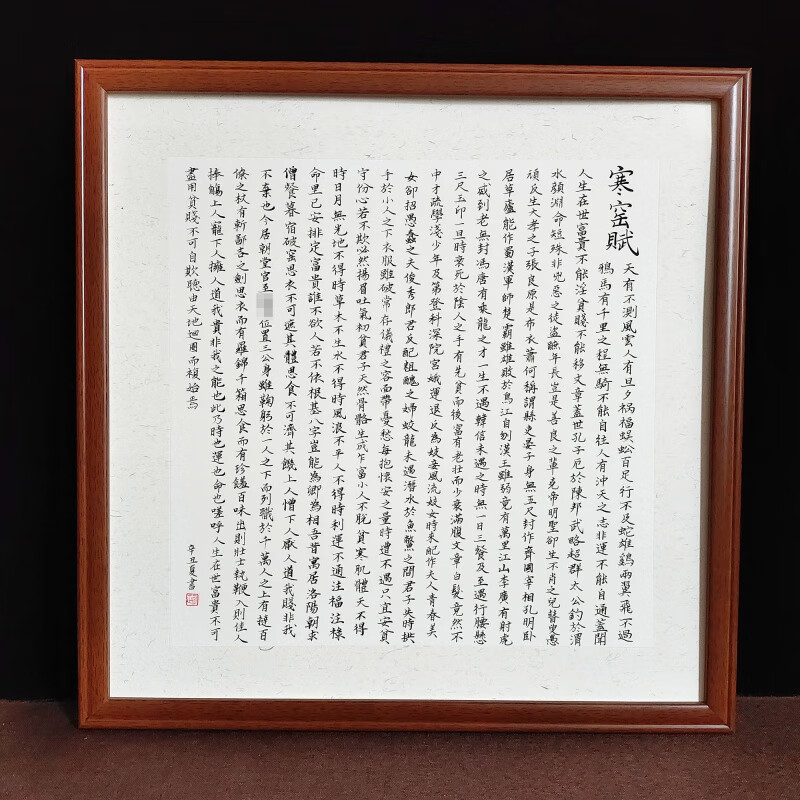 寒窑賦
天有不測風雲人有旦夕禍福蜈蚣百足行不及蛇雄鷄兩翼飛不過
鴉馬有千里之程無騎不能自往人有沖天之志非運不能自通蓋聞
人生在世富貴不能淫貧賤不能移文章蓋世孔子厄於陳邦武略超群太公釣於渭
水顏淵命短殊非兇惡之徒盜蹠年長豈是善良之輩堯帝明聖卻生不肖之兒瞽叟愚
頑反生大孝之子張良原是布衣蕭何稱謂縣吏晏子身無五尺封作齊國宰相孔明卧
居草廬能作蜀漢軍師楚霸雖雄敗於烏江自刎漢王雖弱竟有萬里江山李廣有射虎
之威到老無封馮唐有乘龍之才一生不遇韓信未遇之時無一日三餐及至遇行腰懸
三尺玉印一旦時衰死於陰人之手有先貧而後富有老壯而少衰滿腹文章白髮竟然不
中才疏學淺少年及第登科深院宮娥運退反為妓妾風流妓女時來配作夫人青春美
女卻招愚蠢之夫俊秀郎君反配粗醜之婦蛟龍未遇潛水於魚鱉之間君子失時拱
手於小人之下衣服雖破常存儀禮之容面帶憂愁每抱懷安之量時遭不遇只宜安貧
守份心若不欺必然揚眉吐氣初貧君子天然骨骼生成乍富小人不脫貧寒肌體天不得
時日月無光地不得時草木不生水不得時風浪不平人不得時利運不通注福注祿
命里已安排定富貴誰不欲人若不依根基八字豈能為卿為相吾昔寓居洛陽朝求
僧餐暮宿破窑思衣不可遮其體思食不可濟其饑上人憎下人厭人道我賤非我
不棄也今居朝堂官至位置三公身雖鞠躬於一人之下而列職於千萬人之上有撻百
僚之杖有斬鄙吝之劍思衣而有羅錦千箱思食而有珍饈百味出則壯士執鞭入則佳人
捧觴上人寵下人擁人道我貴非我之能也此乃時也運也命也嗟呼人生在世富貴不可
盡用貧賤不可自欺聽由天地迴圈周而複始焉
辛丑夏書